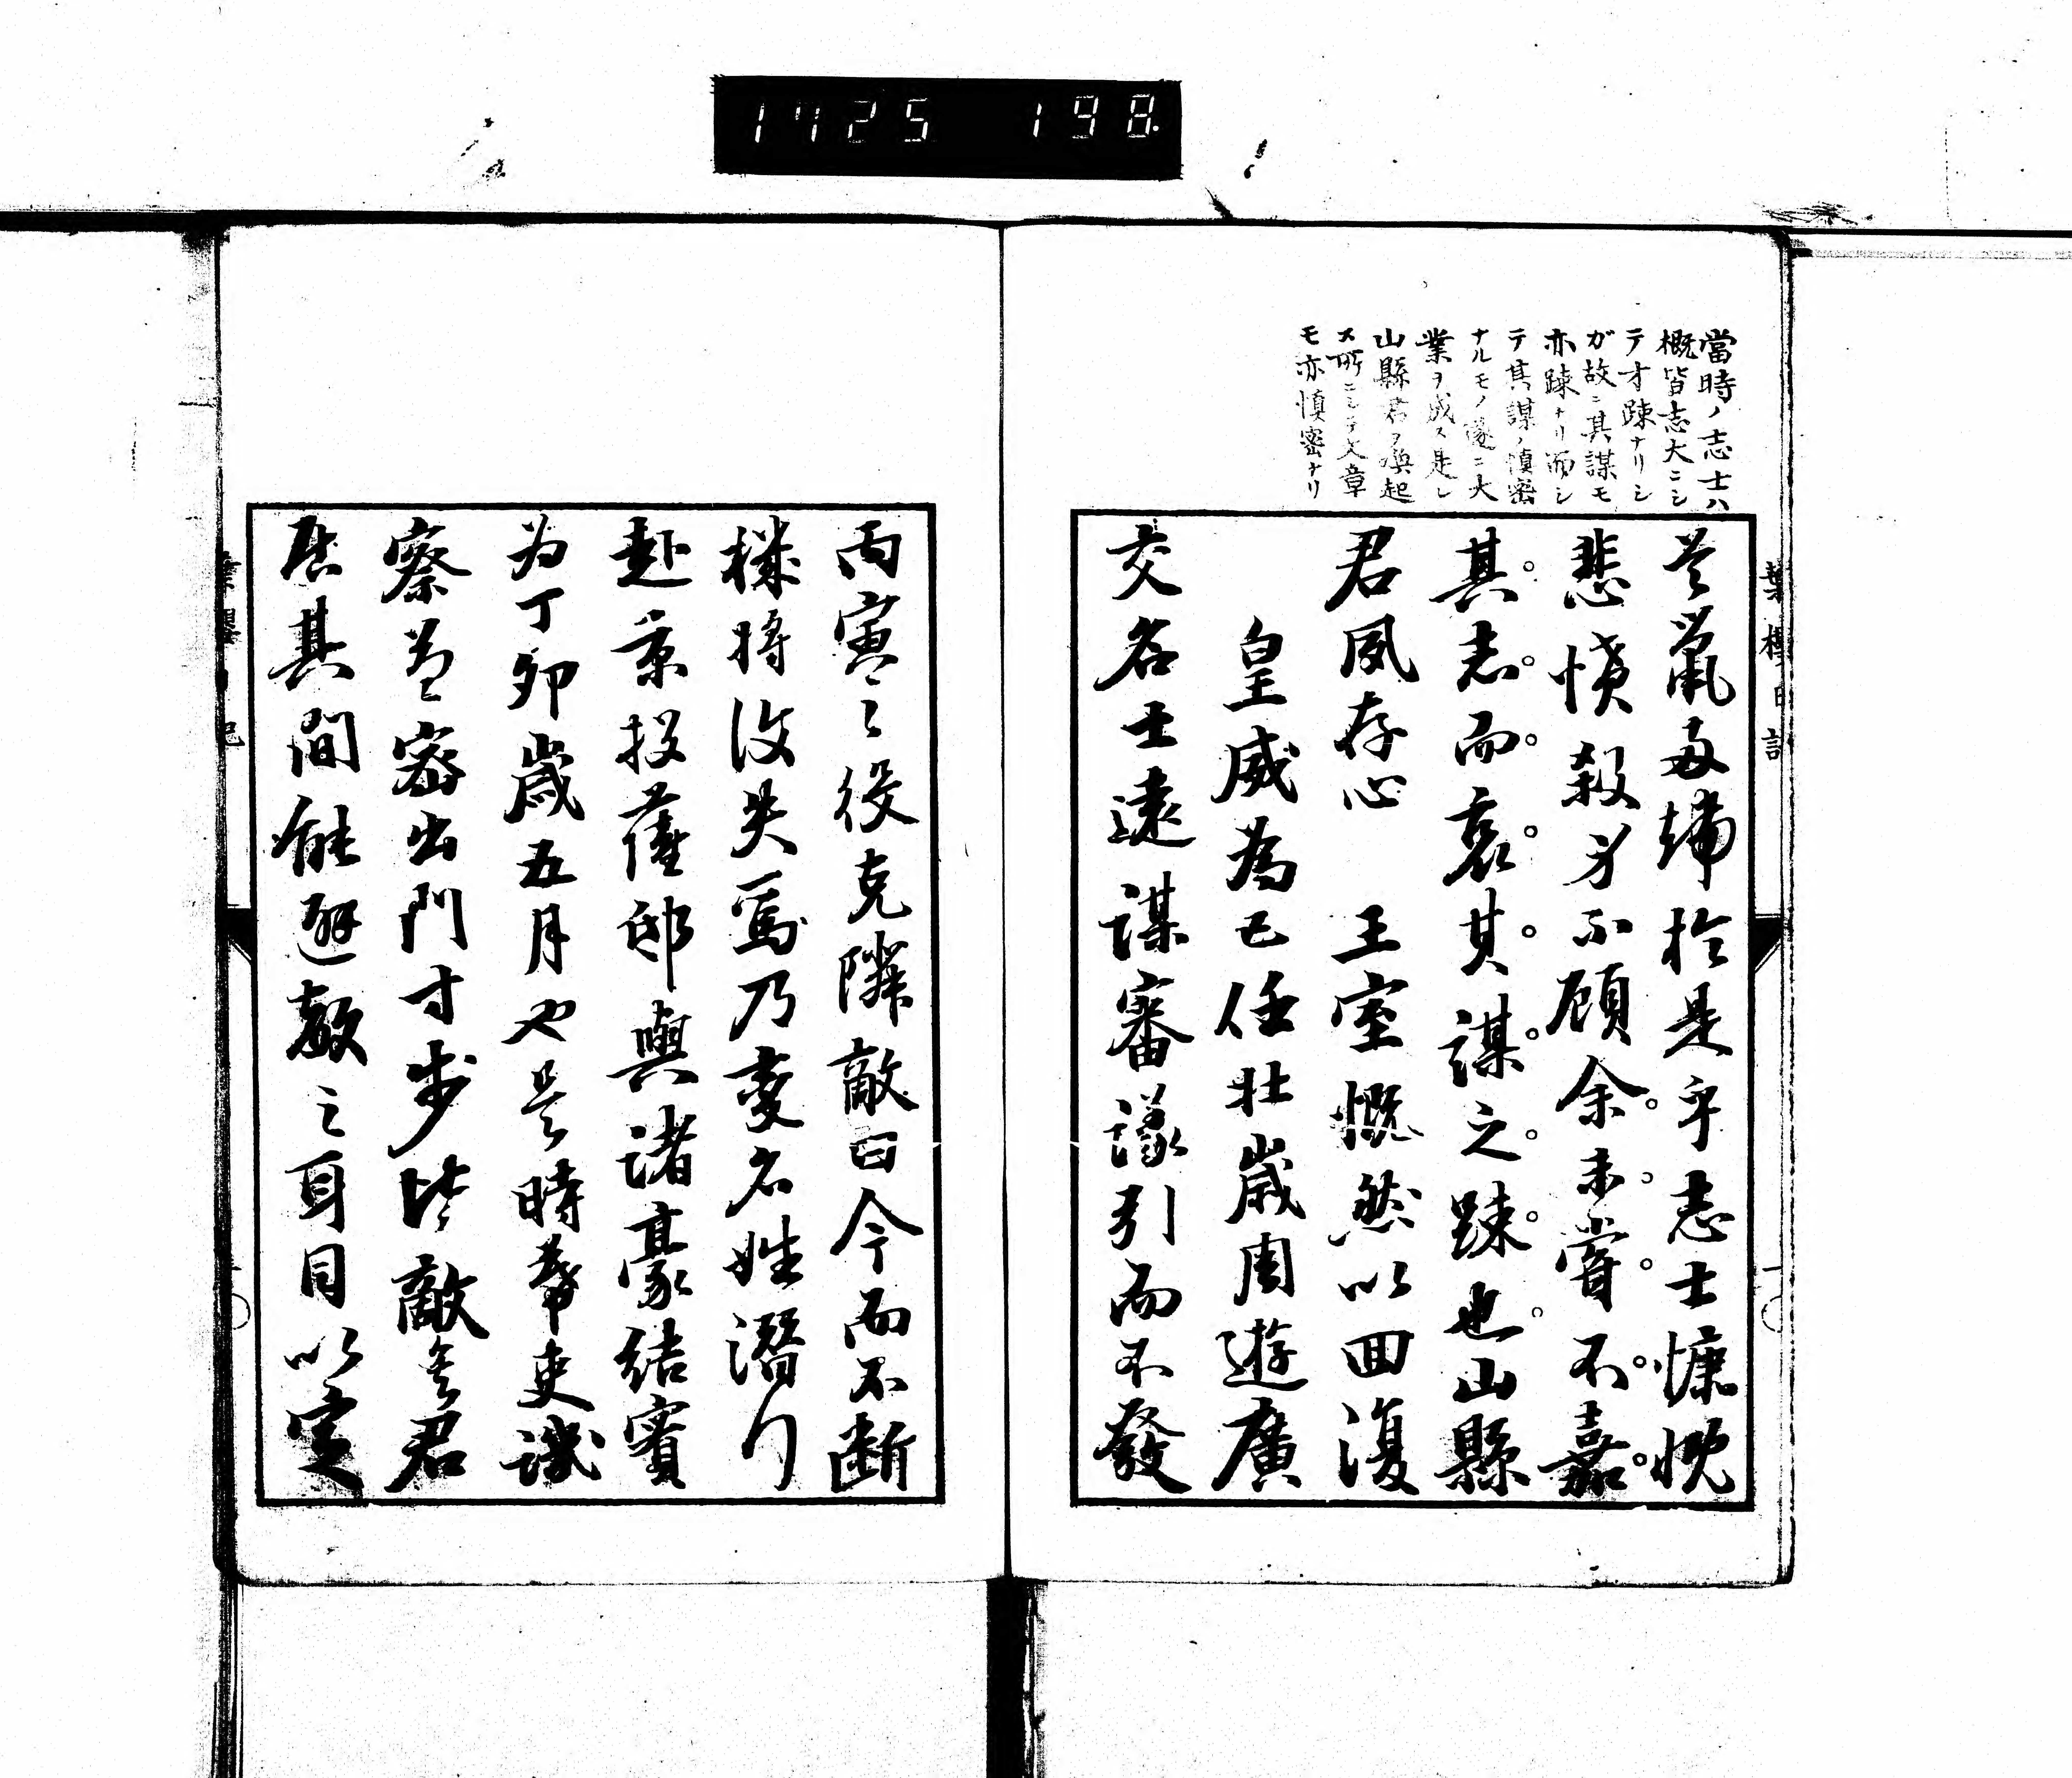 1725 198
當時ノ志士ハ
概皆志大ニシ
テオ踈ナリシ
ガ故ニ其謀モ
亦踈ナリ而シ
テ其謀ノ慎密
ナルモノ遂ニ大
業ヲ成ス是レ
山縣君ヲ喚起
ス所ニシテ文章
モ亦慎密ナリ
於是乎志士慷慨
悲憤殺身不顧余未嘗不嘉
其志而哀其謀之踈也山縣
君夙存心 王室慨然以回復
皇威為己任壮歳周遊廣
交名士遠謀審議引而不發
丙寅之役克隣敵曰今而不断
機將復失焉乃変名姓潜行
赴京投薩邸與諸豪結賓
为丁卯歳五月也是時幕吏譏
察益密出門寸步皆敵矣君
居其間能避敵之耳目以定